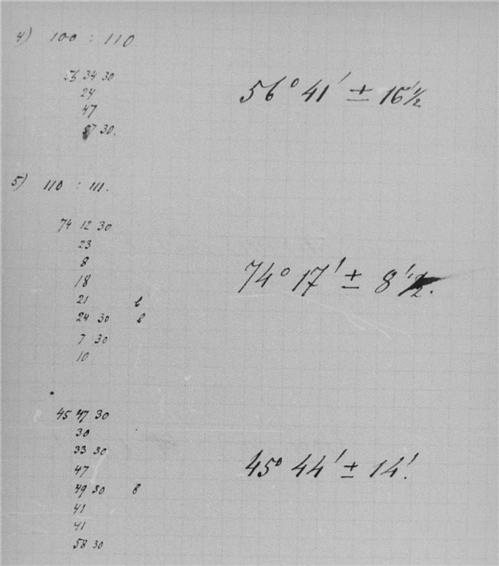 4) 100 : 110
56 34 30
24
47
57 30.
56° 41' ± 16'½
5) 110 : 111.
74 12 30
23
8
18
21 b
24 30 b
7 30
10
74° 17' ± 8'½.
45 47 30
30
33 30
47
49 30 b
41
41
58 30
45° 44' ± 14'.